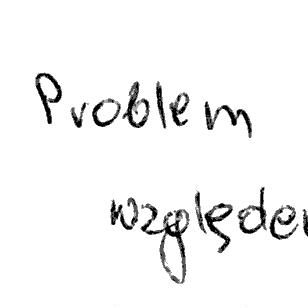 Problem
względe